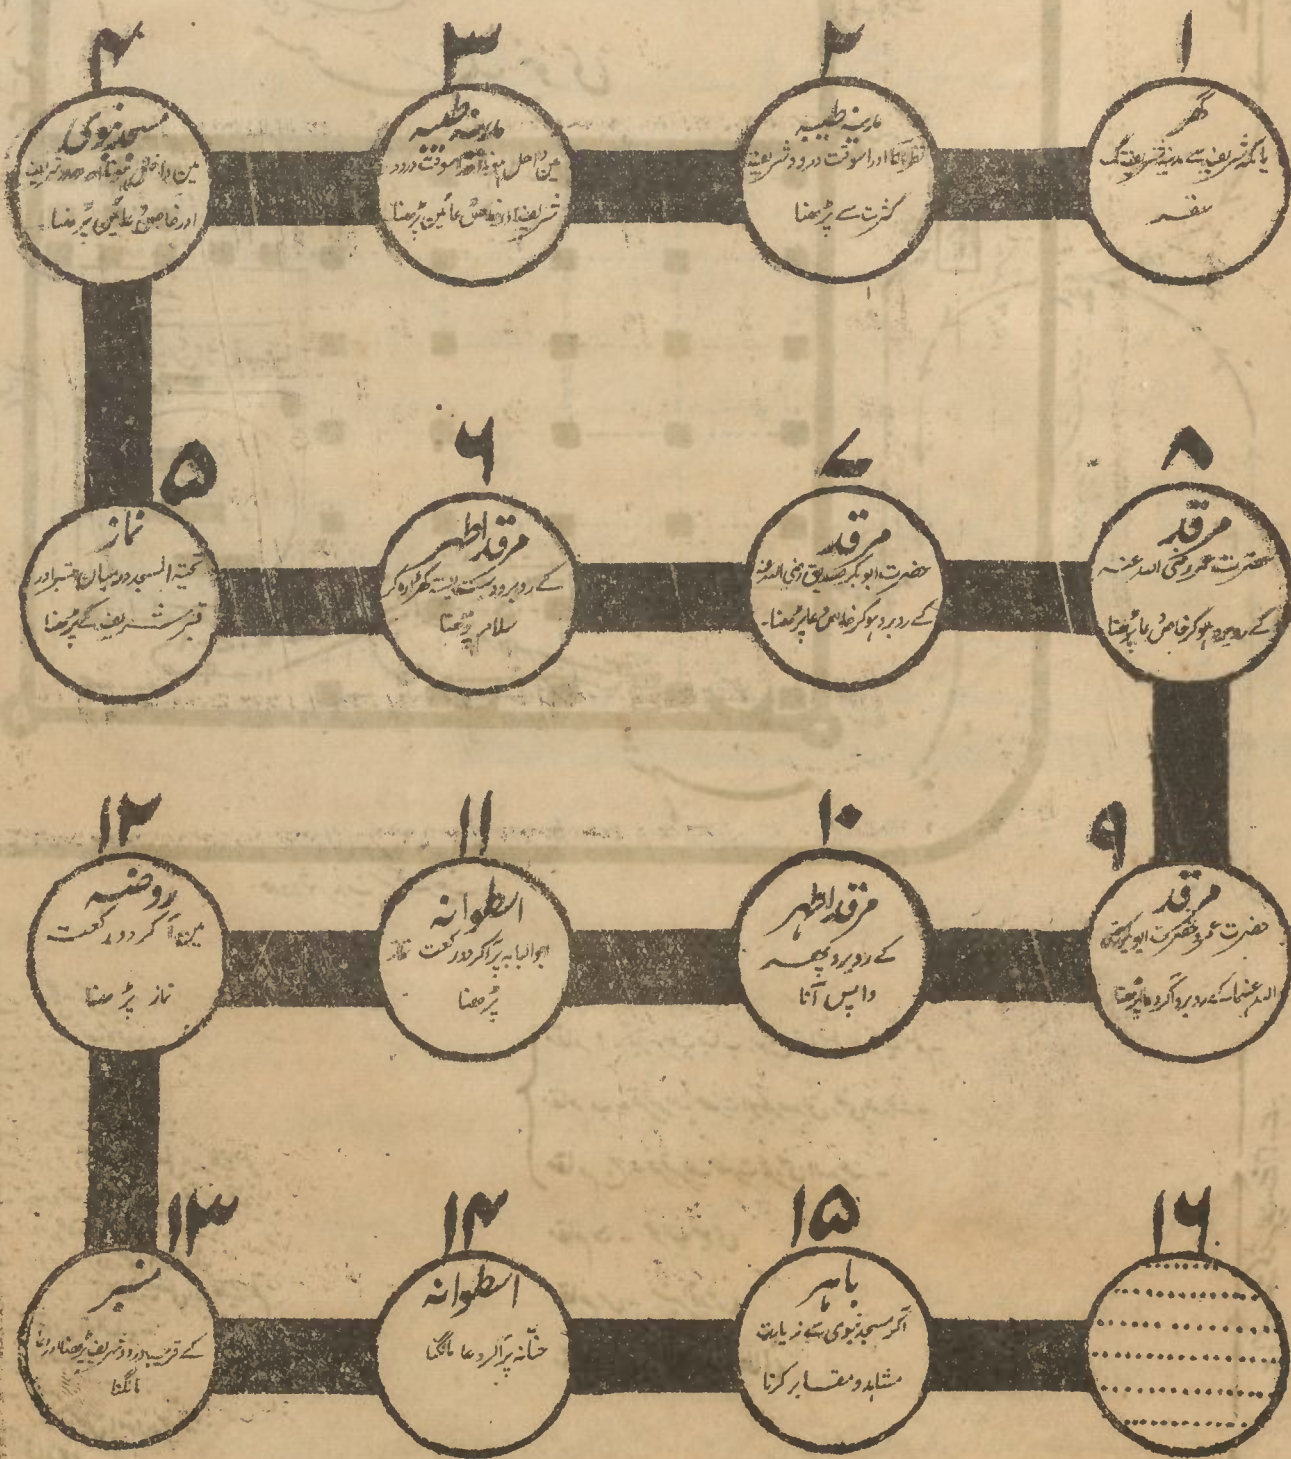 ۱
گھر
یا مکہ شریف سے مدینہ شریف تک
سفر
۲
مدینہ طیبہ
نظر آنا اور اسوقت درود شریف
کثرت سے پڑھنا
۳
مدینہ طیبہ
مین داخل ہونا اور اسوقت درود
شریف اور خاص دعائین پڑھنا
۴
مسجد نبوی
مین داخل ہونا اور درود شریف
اور خاص دعائین پڑھنا۔
۵
نماز
تحیۃ المسجد درمیان منبر اور
قبر شریف کے پڑھنا
۶
مرقد اطہر
کے روبرو دست بستہ کھڑا ہو کر
سلام پڑھنا
۷
مرقد
حضرت ابوبکر صدیق رضی اللہ عنہ
کے روبرو ہو کر خاص دعا پڑھنا۔
۸
مرقد
حضرت عمر رضی اللہ عنہ
کے روبرو ہو کر خاص دعا پڑھنا
۹
مرقد
حضرت عمر و حضرت ابوبکر رضی
اللہ عنہما کے روبرو آکر دعا پڑھنا
۱۰
مرقد اطہر
کے روبرو پھر
واپس آنا
۱۱
اسطوانہ
ابو لبابہ پر آکر دو رکعت نماز
پڑھنا
۱۲
روضہ
مین آکر دو رکعت
نماز پڑھنا
۱۳
منبر
کے قریب درود شریف پڑھنا اور دعا
مانگنا
۱۴
اسطوانہ
حنانہ پر آکر دعا مانگنا
۱۵
باہر
آکر مسجد نبوی سے زیارت
مشاہد و مقابر کرنا
۱۶